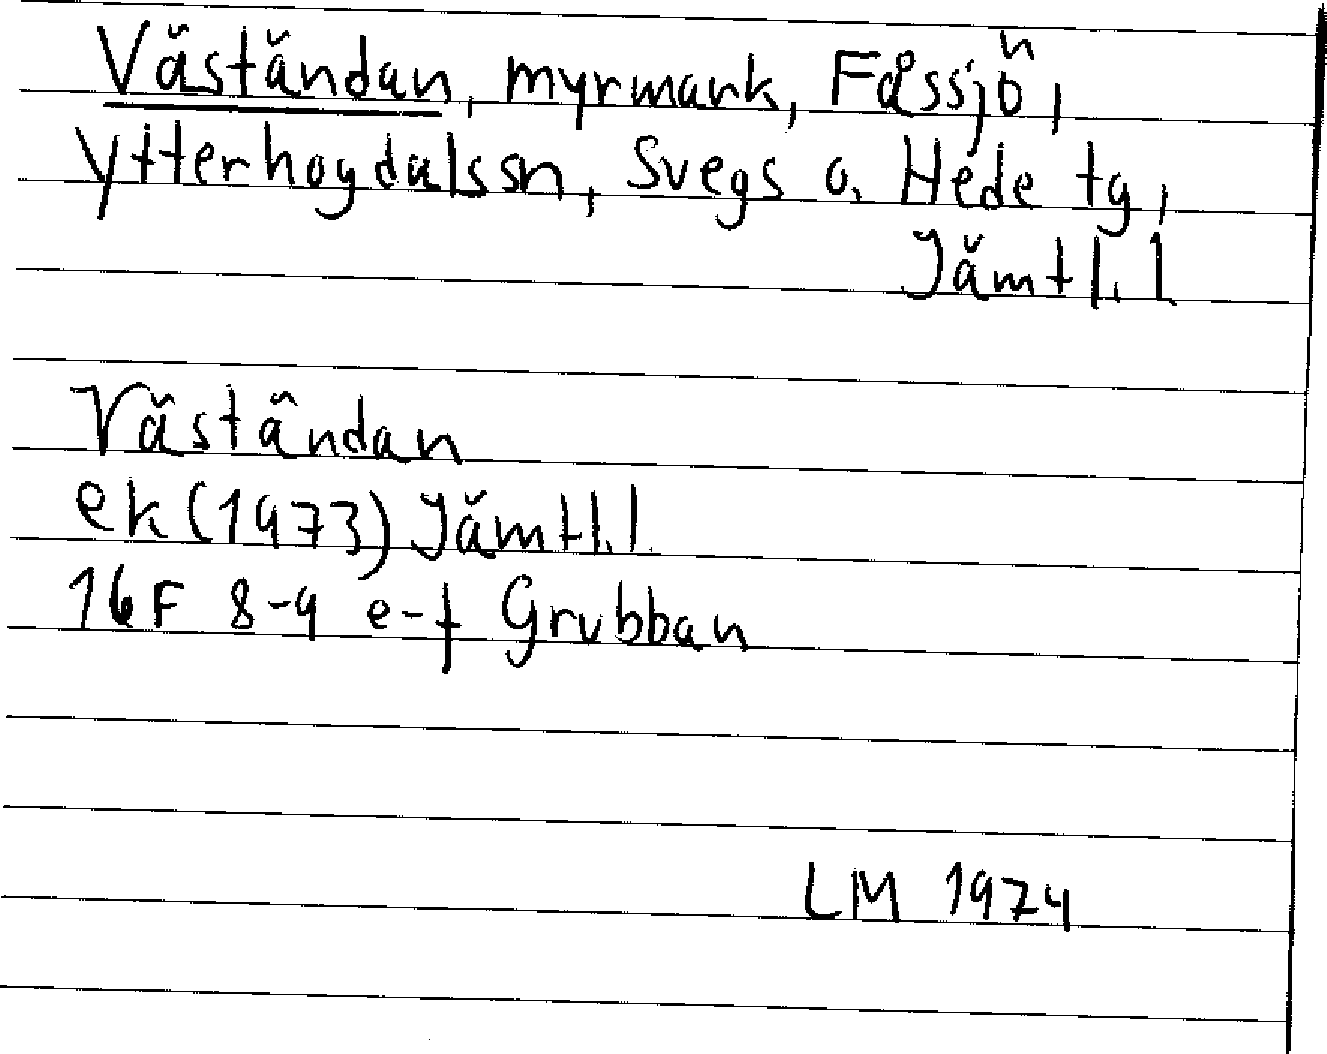 Väständan, myrmark, Fåssjö,
Ytterhogdalssn, Svegs o. Hede tg,
Jämtl. l
Väständan
ek (1973) Jämtl. l.
16F 8-9 e-f Grubban
LM 1974